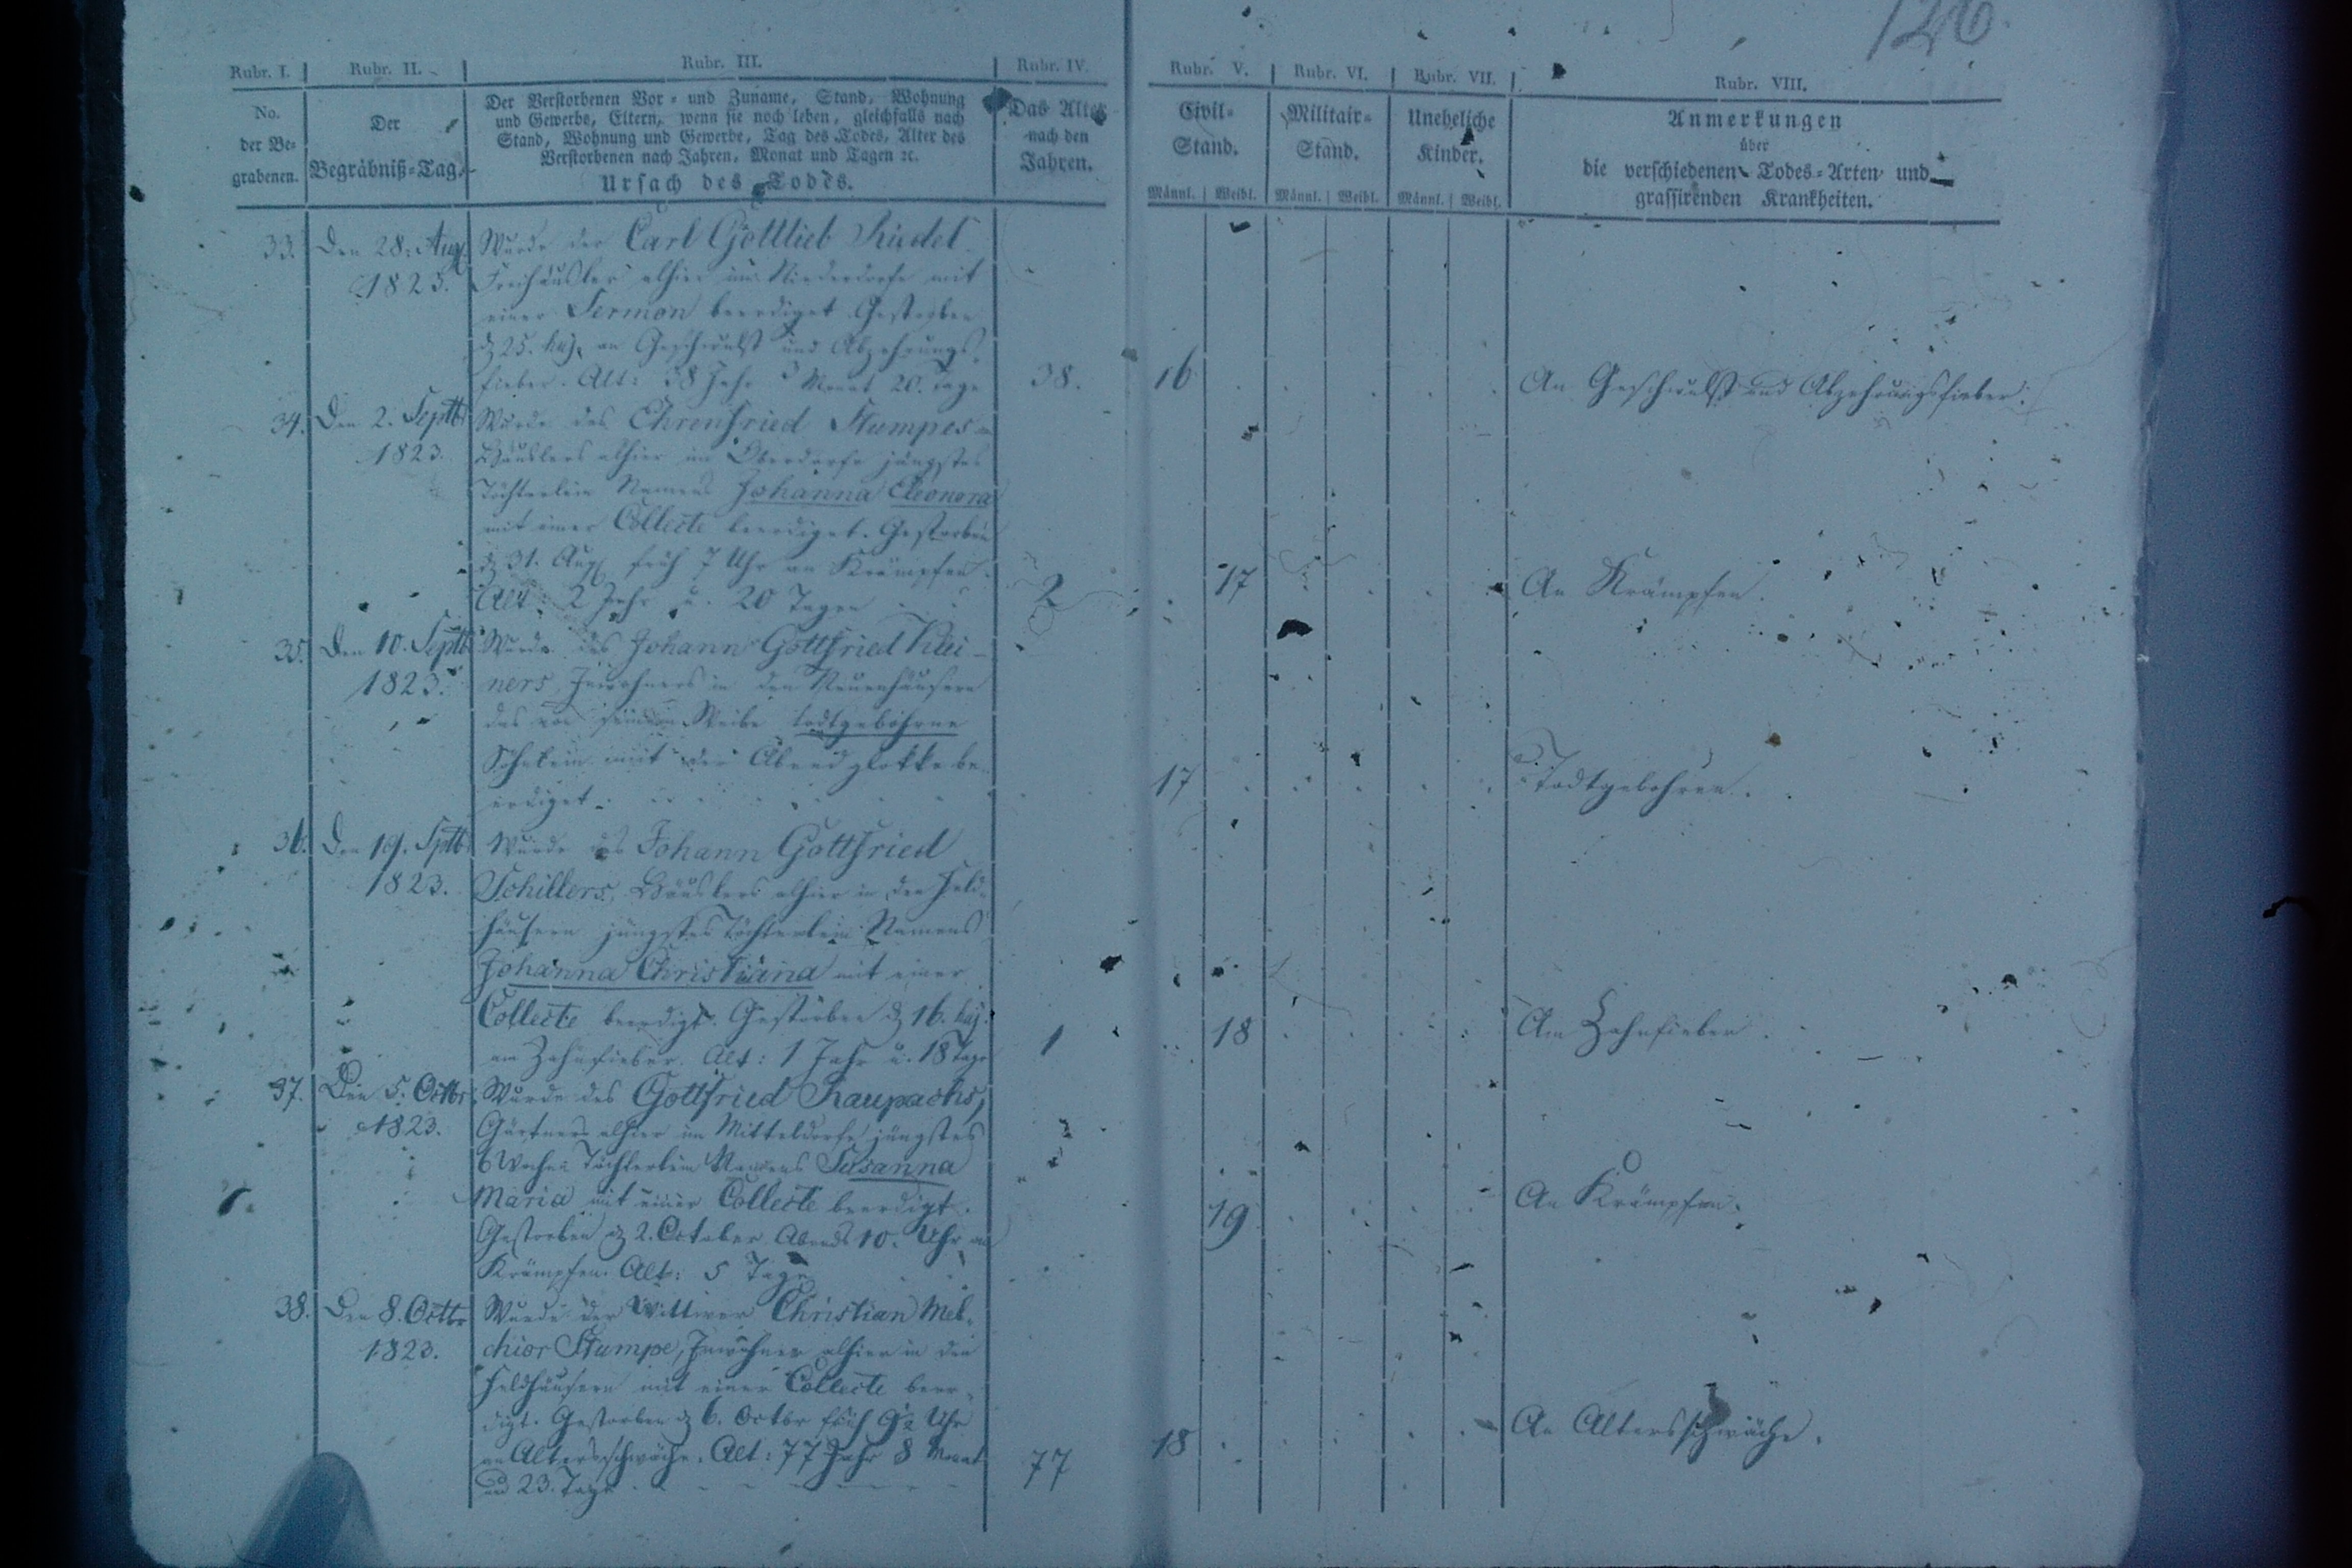 126.
Rubr. I. Rubr. II. Rubr. III. Rubr. IV. Rubr. V. Rubr. VI. Rubr. VII. Rubr. VIII.
No.
der Be-
grabenen.
Der
Begräbniß-Tag.
Der Verstorbenen Vor- und Zuname, Stand, Wohnung
und Gewerbe, Eltern, wenn sie noch leben, gleichfalls nach
Stand, Wohnung und Gewerbe, Tag des Todes, Alter des
Verstorbenen nach Jahren, Monat und Tagen ꝛc.
Ursach des Todes.
Das Alter
nach den
Jahren.
Civil-
Stand.
Männl. Weibl.
Militair-
Stand.
Männl. Weibl.
Uneheliche
Kinder.
Männl. Weibl.
Anmerkungen
über
die verschiedenen Todes-Arten und
grassirenden Krankheiten.
33. Den 28. Aug.
1823.
Wurde der Carl Gottlieb Riedel
Freihäusler alhier im Niederdorfe mit
einer Sermon beerdiget. Gestorben
d. 25. huj. an Geschwulst und Abzehrungs-
fieber. Alt: 38 Jahr 3 Monat 20. Tage
38. 16 An Geschwulst und Abzehrungsfieber.
34. Den 2. Septb
1823.
Wurde des Ehrenfried Stumpes
Häuslers alhier im Oberdorfe jüngstes
Töchterlein Namens Johanna Eleonora
mit einer Collecte beerdiget. Gestorben
d. 31. Aug früh 7 Uhr an Krämpfen.
Alt: 2 Jahr u. 20 Tagen
2 17 An Krämpfen.
35. Den 10. Septb
1823.
Wurde des Johann Gottfried
ners Inwohners in den Neuenhäusern
das von seinem Weibe todtgebohrne
Söhnlein mit der Abendglokke be-
erdiget.
17 Todtgebohren.
36. Den 19. Sptb
1823.
Wurde des Johann Gottfried
Schillers, Häuslers alhier in den Feld-
häusern jüngstes Töchterlein Namens
Johanna Christiana mit einer
Collecte beerdigt. Gestorben d. 16. huj.
am Zahnfieber. Alt: 1 Jahr u. 18 Tage
1 18 Am Zahnfieber.
37. Den 5. Octbr
1823.
Wurde des Gottfried Raupachs,
Gärtners alhier im Mitteldorfe jüngstes
6 Wochen Töchterlein Namens Susanna
Maria mit einer Collecte beerdigt.
Gestorben d. 2. October Abends 10. Uhr an
Krämpfen. Alt: 5 Tage
19 An Krämpfen.
38. Den 8. Octbr
1823.
Wurde der Wittwer Christian Mel-
chior Stumpe, Inwohner alhier in den
Feldhäusern mit einer Collecte beer-
digt. Gestorben d. 6. Octbr früh 9½ Uhr
an Altersschwäche. Alt: 77 Jahr 8 Monat
und 23. Tage.
77 18 An Altersschwäche.